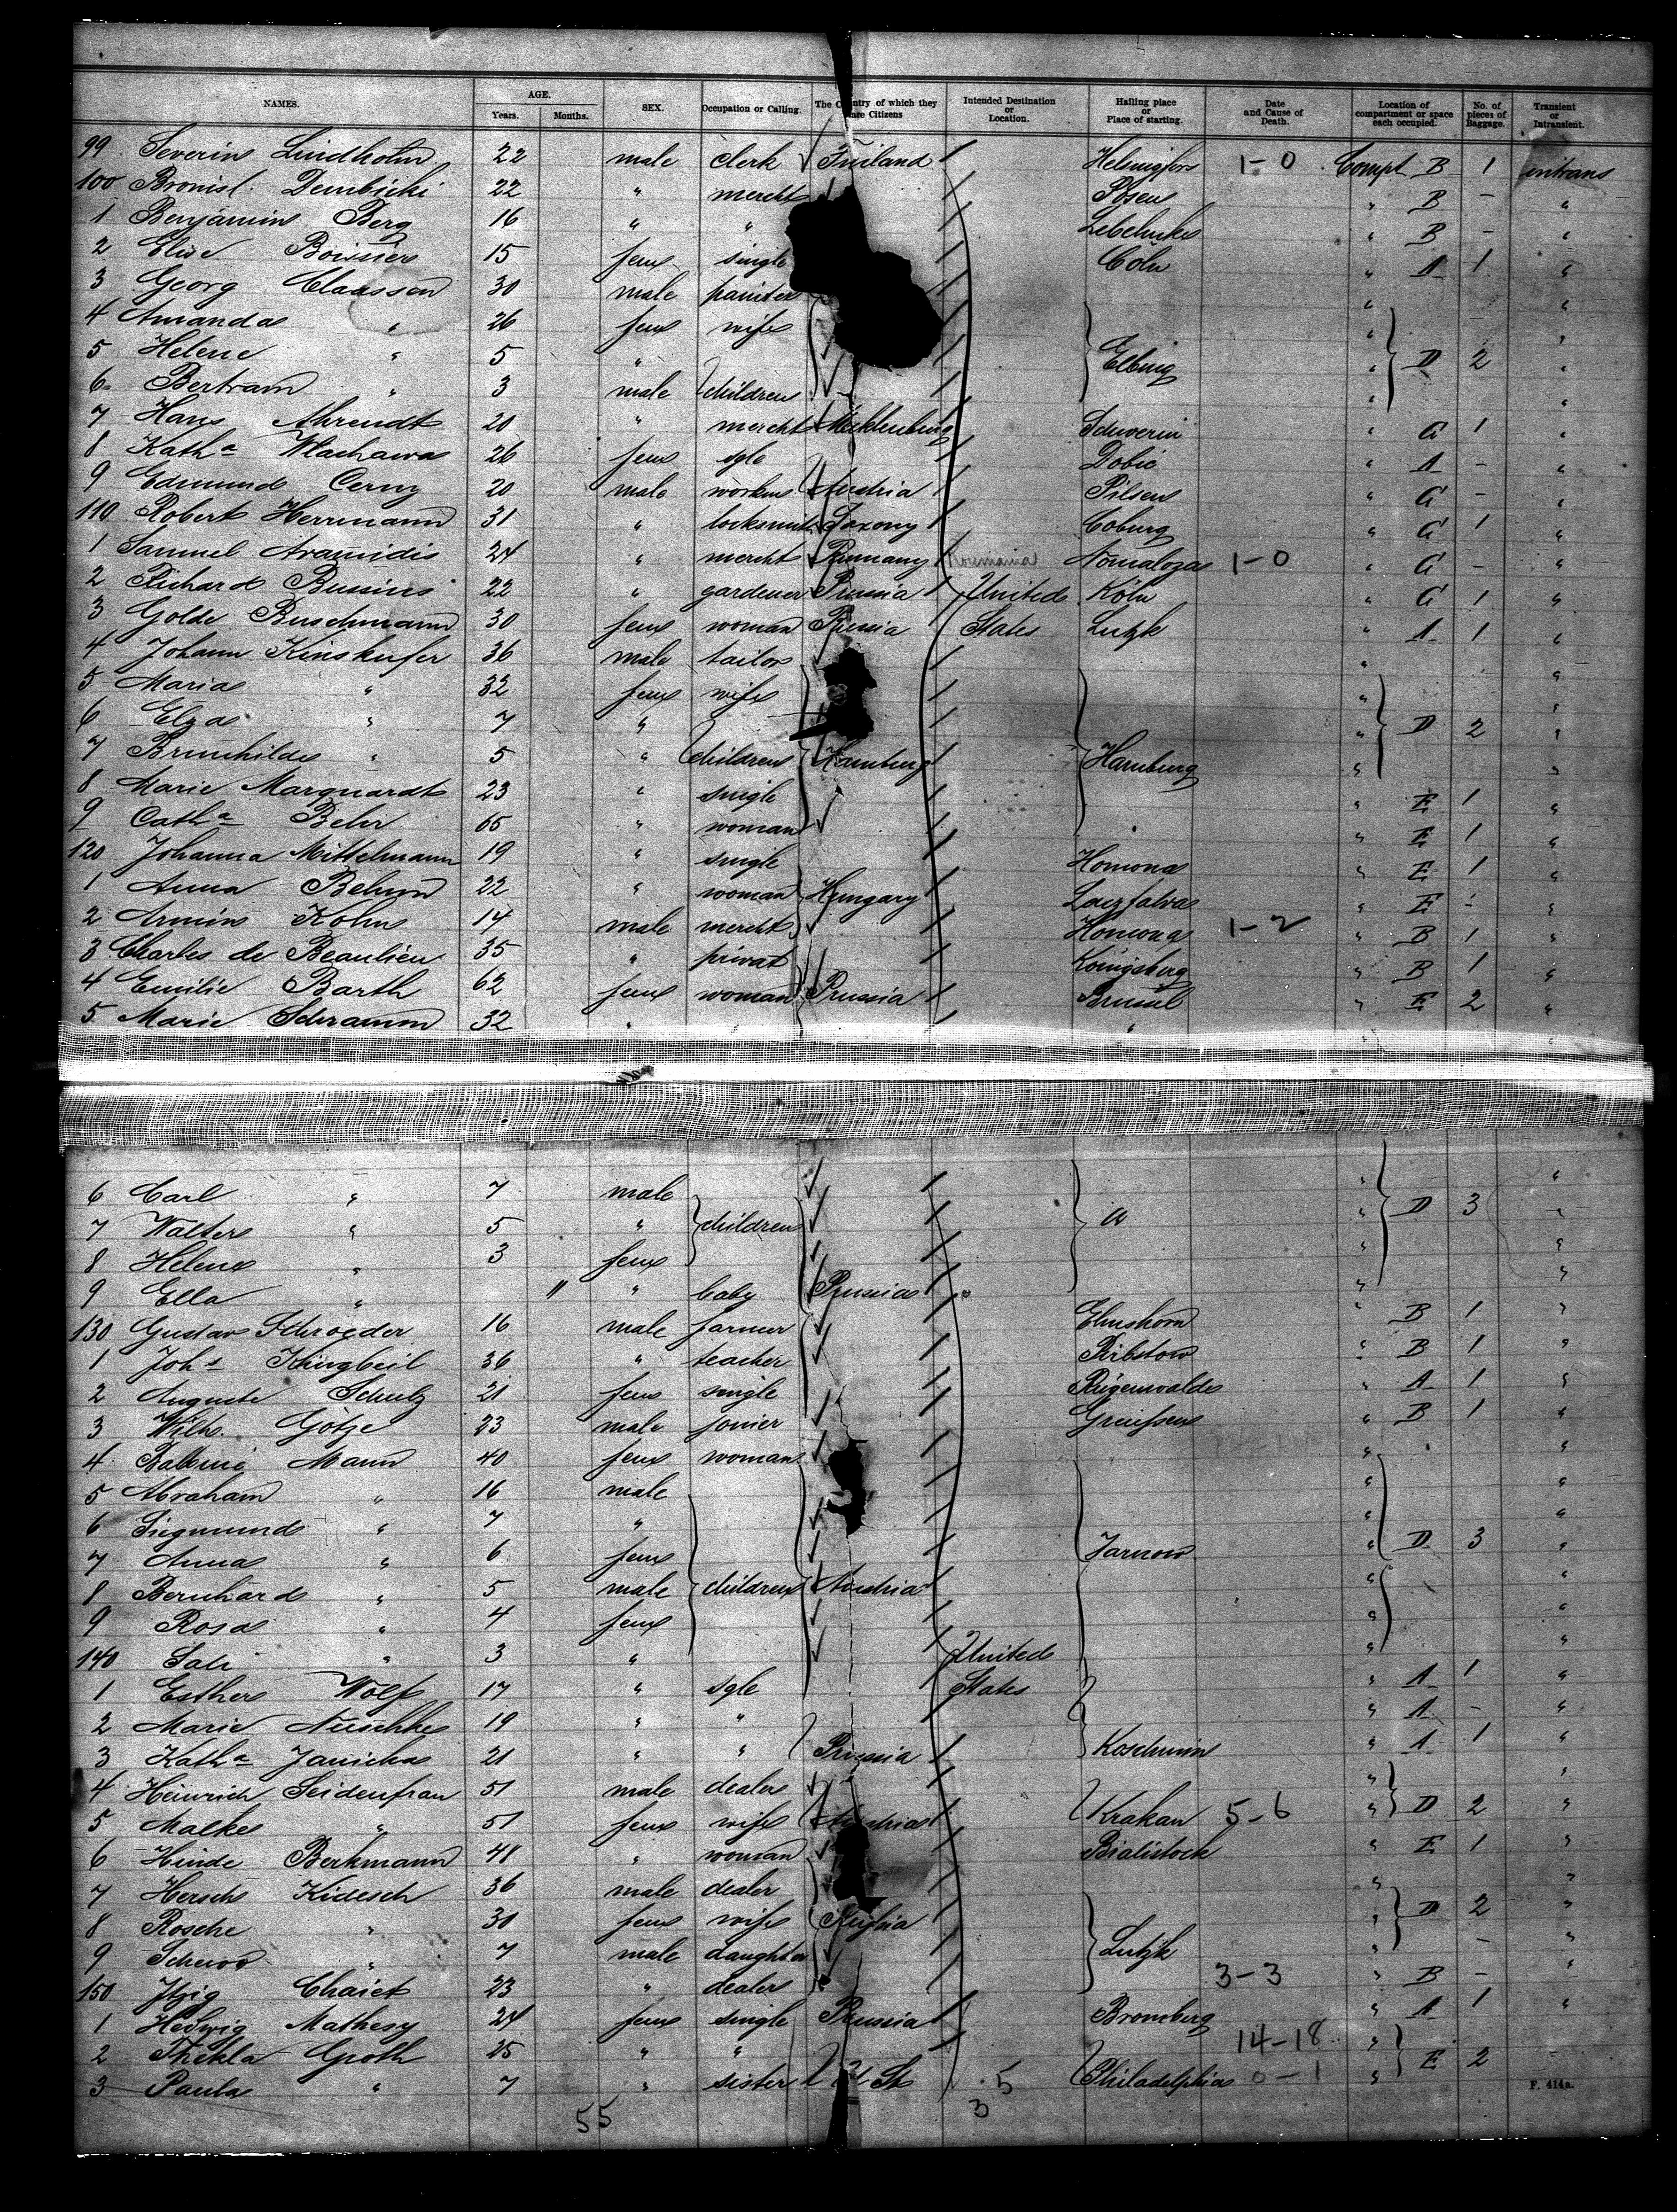 NAMES. AGE. Years. Months. SEX. Occupation or Calling. The Country of which they are Citizens Intended Destination or Location. Hailing place or Place of starting. Date and Cause of Death. Location of compartment or space each occupied. No. of pieces of Baggage. Transient or Intransient.
99 Severin Lindholm 22 male clerk Finland Helsingfors 1-0 Compt B 1 intrans
100 Bronisl. Dembicki 22 " mercht Posen " B - "
1 Benjamin Berg 16 " " " B - "
2 Elise 15 fem single Cöln " A 1 "
3 Georg Claassen 30 male painter " "
4 Amanda " 26 fem wife " "
5 Helene " 5 " Elbing " D 2 "
6 Bertram " 3 male children " "
7 Hans Ahrendt 20 " mercht Mecklenburg Schwerin " G 1 "
8 Katha Wlachawa 26 fem sgle Dobic " A - "
9 Edmund Cerny 20 male workm Austria Pilsen " G - "
110 Robert Herrmann 31 " locksmith Saxony Coburg " G 1 "
1 Samuel Aramidis 24 " mercht Rumany Roumania 1-0 " G - "
2 Richard 22 " gardener Prussia United Köln " G 1 "
3 Golde Buschmann 30 fem woman Russia States Lutzk " A 1 "
4 Johann Kinskufer 36 male tailor " "
5 Maria " 32 fem wife " "
6 Elza " 7 " " D 2 "
7 Brunhilde " 5 " children Hamburg Hamburg " "
8 Marie Marquardt 23 " single " E 1 "
9 Catha Behr 65 " woman " E 1 "
120 Johanna Mittelmann 19 " single Homona " E 1 "
1 Anna 22 " woman Hungary " E - "
2 Armin Kohn 14 male mercht Homona 1-2 " B 1 "
3 Charles de Beaulieu 35 " privat Königsberg " B 1 "
4 Emilie Barth 62 fem woman Prussia " E 2 "
5 Marie Schramm 32 " "
6 Carl " 7 male " "
7 Walter " 5 " children " D 3 "
8 Helene " 3 fem " "
9 Ella " 11 " baby Prussia " "
130 Gustav Schroeder 16 male farmer Elmshorn " B 1 "
1 Johs Klingbeil 36 " teacher Pribstow " B 1 "
2 Auguste Schulz 21 fem single Rügenwalde " A 1 "
3 Wilh. Götze 23 male joiner Greussen " B 1 "
4 Mann 40 fem woman " "
5 Abraham " 16 male " "
6 Siegmund " 7 " " "
7 Anna " 6 fem Tarnow " D 3 "
8 Bernhard " 5 male children Austria " "
9 Rosa " 4 fem " "
140 Sali " 3 " United " "
1 Esther Wolf 17 " sgle States " A 1 "
2 Marie Nuschke 19 " " " A - "
3 Katha Janicka 21 " " Prussia Koschmin " A 1 "
4 Heinrich Seidenfrau 51 male dealer " "
5 Malke " 51 fem wife Austria Krakau 5-6 " D 2 "
6 Hinde Berkmann 48 " woman Bialistock " E 1 "
7 Hersch Kidesch 36 male dealer " "
8 Rosche " 30 fem wife Russia " D 2 "
9 " 7 male daughter Lutzk " - "
150 Itzig Chaiet 23 " dealer 3-3 " B - "
1 Hedwig Mathesy 24 fem single Prussia Bromberg " A 1 "
2 Thekla Groth 25 " " 14-18 "
3 Paula " 7 " sister U. St. 5 Philadelphia 0-1 " E 2
55 3
F. 414a.